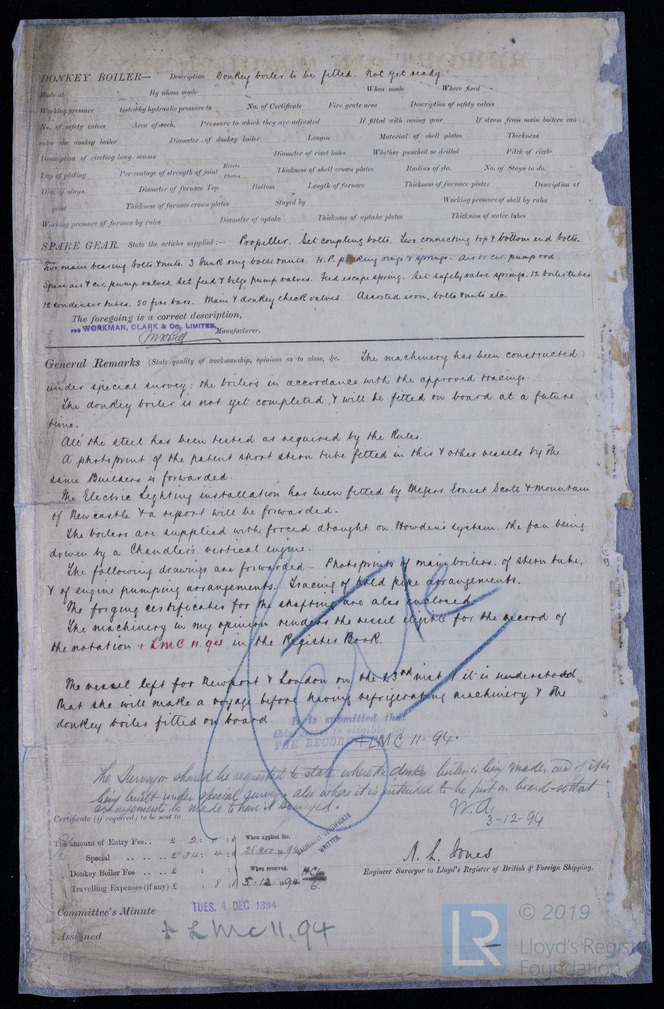 DONKEY BOILER— Description Donkey boiler to be fitted. Not yet ready.
Made at By whom made When made Where fixed
Working pressure tested by hydraulic pressure to No. of Certificate Fire grate area Description of safety valves
No. of safety valves Area of each Pressure to which they are adjusted If fitted with easing gear If steam from main boilers can
enter the donkey boiler Diameter of donkey boiler Length Material of shell plates Thickness
Description of riveting long. seams Diameter of rivet holes Whether punched or drilled Pitch of rivets
Lap of plating Per centage of strength of joint Rivets Plates Thickness of shell crown plates Radius of do. No. of Stays to do.
Dia. of stays. Diameter of furnace Top Bottom Length of furnace Thickness of furnace plates Description of
joint Thickness of furnace crown plates Stayed by Working pressure of shell by rules
Working pressure of furnace by rules Diameter of uptake Thickness of uptake plates Thickness of water tubes
SPARE GEAR. State the articles supplied:— Propeller. Set coupling bolts. Two connecting top & bottom end bolts.
Two main bearing bolts & nuts. 3 junk ring bolts & nuts. H.P. packing rings & springs. Air & cir. pump rod.
Spare air & cir. pump valves. Set feed & bilge pump valves. Feed escape spring. Set safety valve springs. 12 boiler tubes
12 condenser tubes. 50 fire bars. Main & donkey check valves. Assorted iron, bolts & nuts etc.
The foregoing is a correct description,
FOR WORKMAN, CLARK & Co. LIMITED, Manufacturer.
General Remarks (State quality of workmanship, opinions as to class, &c. The machinery has been constructed
under special survey: the boilers in accordance with the approved tracings.
The donkey boiler is not yet completed, & will be fitted on board at a future
time.
All the steel has been tested as required by the Rules.
A photoprint of the patent short stern tube fitted in this & other vessels by the
same Builders is forwarded.
The Electric Lighting installation has been fitted by Messrs Ernest Scott & Mountain
of Newcastle & a report will be forwarded.
The boilers are supplied with forced draught on Howden's system. the fan being
driven by a Chandler's vertical engine.
The following drawings are forwarded— Photoprints of main boilers, of stern tube,
& of engine pumping arrangements. Tracing of hold pipe arrangements.
The forging certificates for the shafting are also enclosed.
The machinery in my opinion renders the vessel eligible for the record of
the notation + LMC 11.94 in the Register Book.
The vessel left for Newport & London on the 23rd inst & it is understood
that she will make a voyage before having refrigerating machinery & the
donkey boiler fitted on board.
It is submitted that
this vessel is eligible
THE RECORD +LMC 11-94.
The Surveyor should be requested to state where the donkey boiler is being made, and if it is
being built under special survey, also where it is intended to be put on board so that
arrangements be made to have it surveyed.
W.A.
3-12-94
Certificate (if required) to be sent to
The amount of Entry Fee.. £ 2 : : When applied for,
Special .. .. .. £ 34 : 4 : 28 Nov 1894
Donkey Boiler Fee .. .. £ : : When received,
Travelling Expenses (if any) £ : 8 : 5.12.1894
CERTIFICATE WRITTEN
A. L. Jones
Engineer Surveyor to Lloyd's Register of British & Foreign Shipping.
Committee's Minute TUES. 4 DEC 1894
Assigned + LMC 11.94
LR
© 2019
Lloyd's Register
Foundation